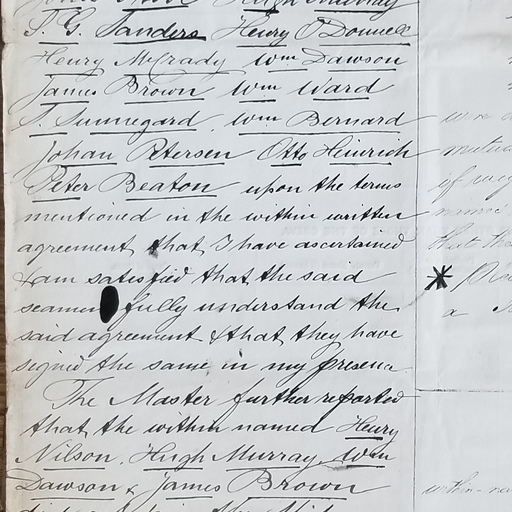 Hugh Murray
T. G. Sanders Henry O'Donnell
Henry McGrady Wm Dawson
James Brown Wm Ward
T. Sunnegard, Wm Bernard
Johan Petersen Otto Heinrich
Peter Beaton upon the terms
mentioned in the within written
agreement that I have ascertained
& am satisfied that the said
seamen fully understand the
said agreement & that they have
signed the same in my presence
The Master further reported
that the within named Henry
Nilson, Hugh Murray, Wm
Dawson & James Brown
mutual
of
named
that the
*
a
within-na